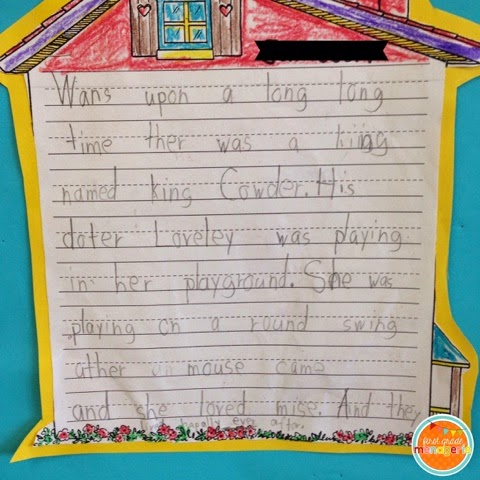 Wans upon a long long
time ther was a king
named king Cowder. His
doter Loveley was playing
in her playground. She was
playing on a round swing
ather an mouse came
and she loved mise. And they
ever after.
first grade
menagerie